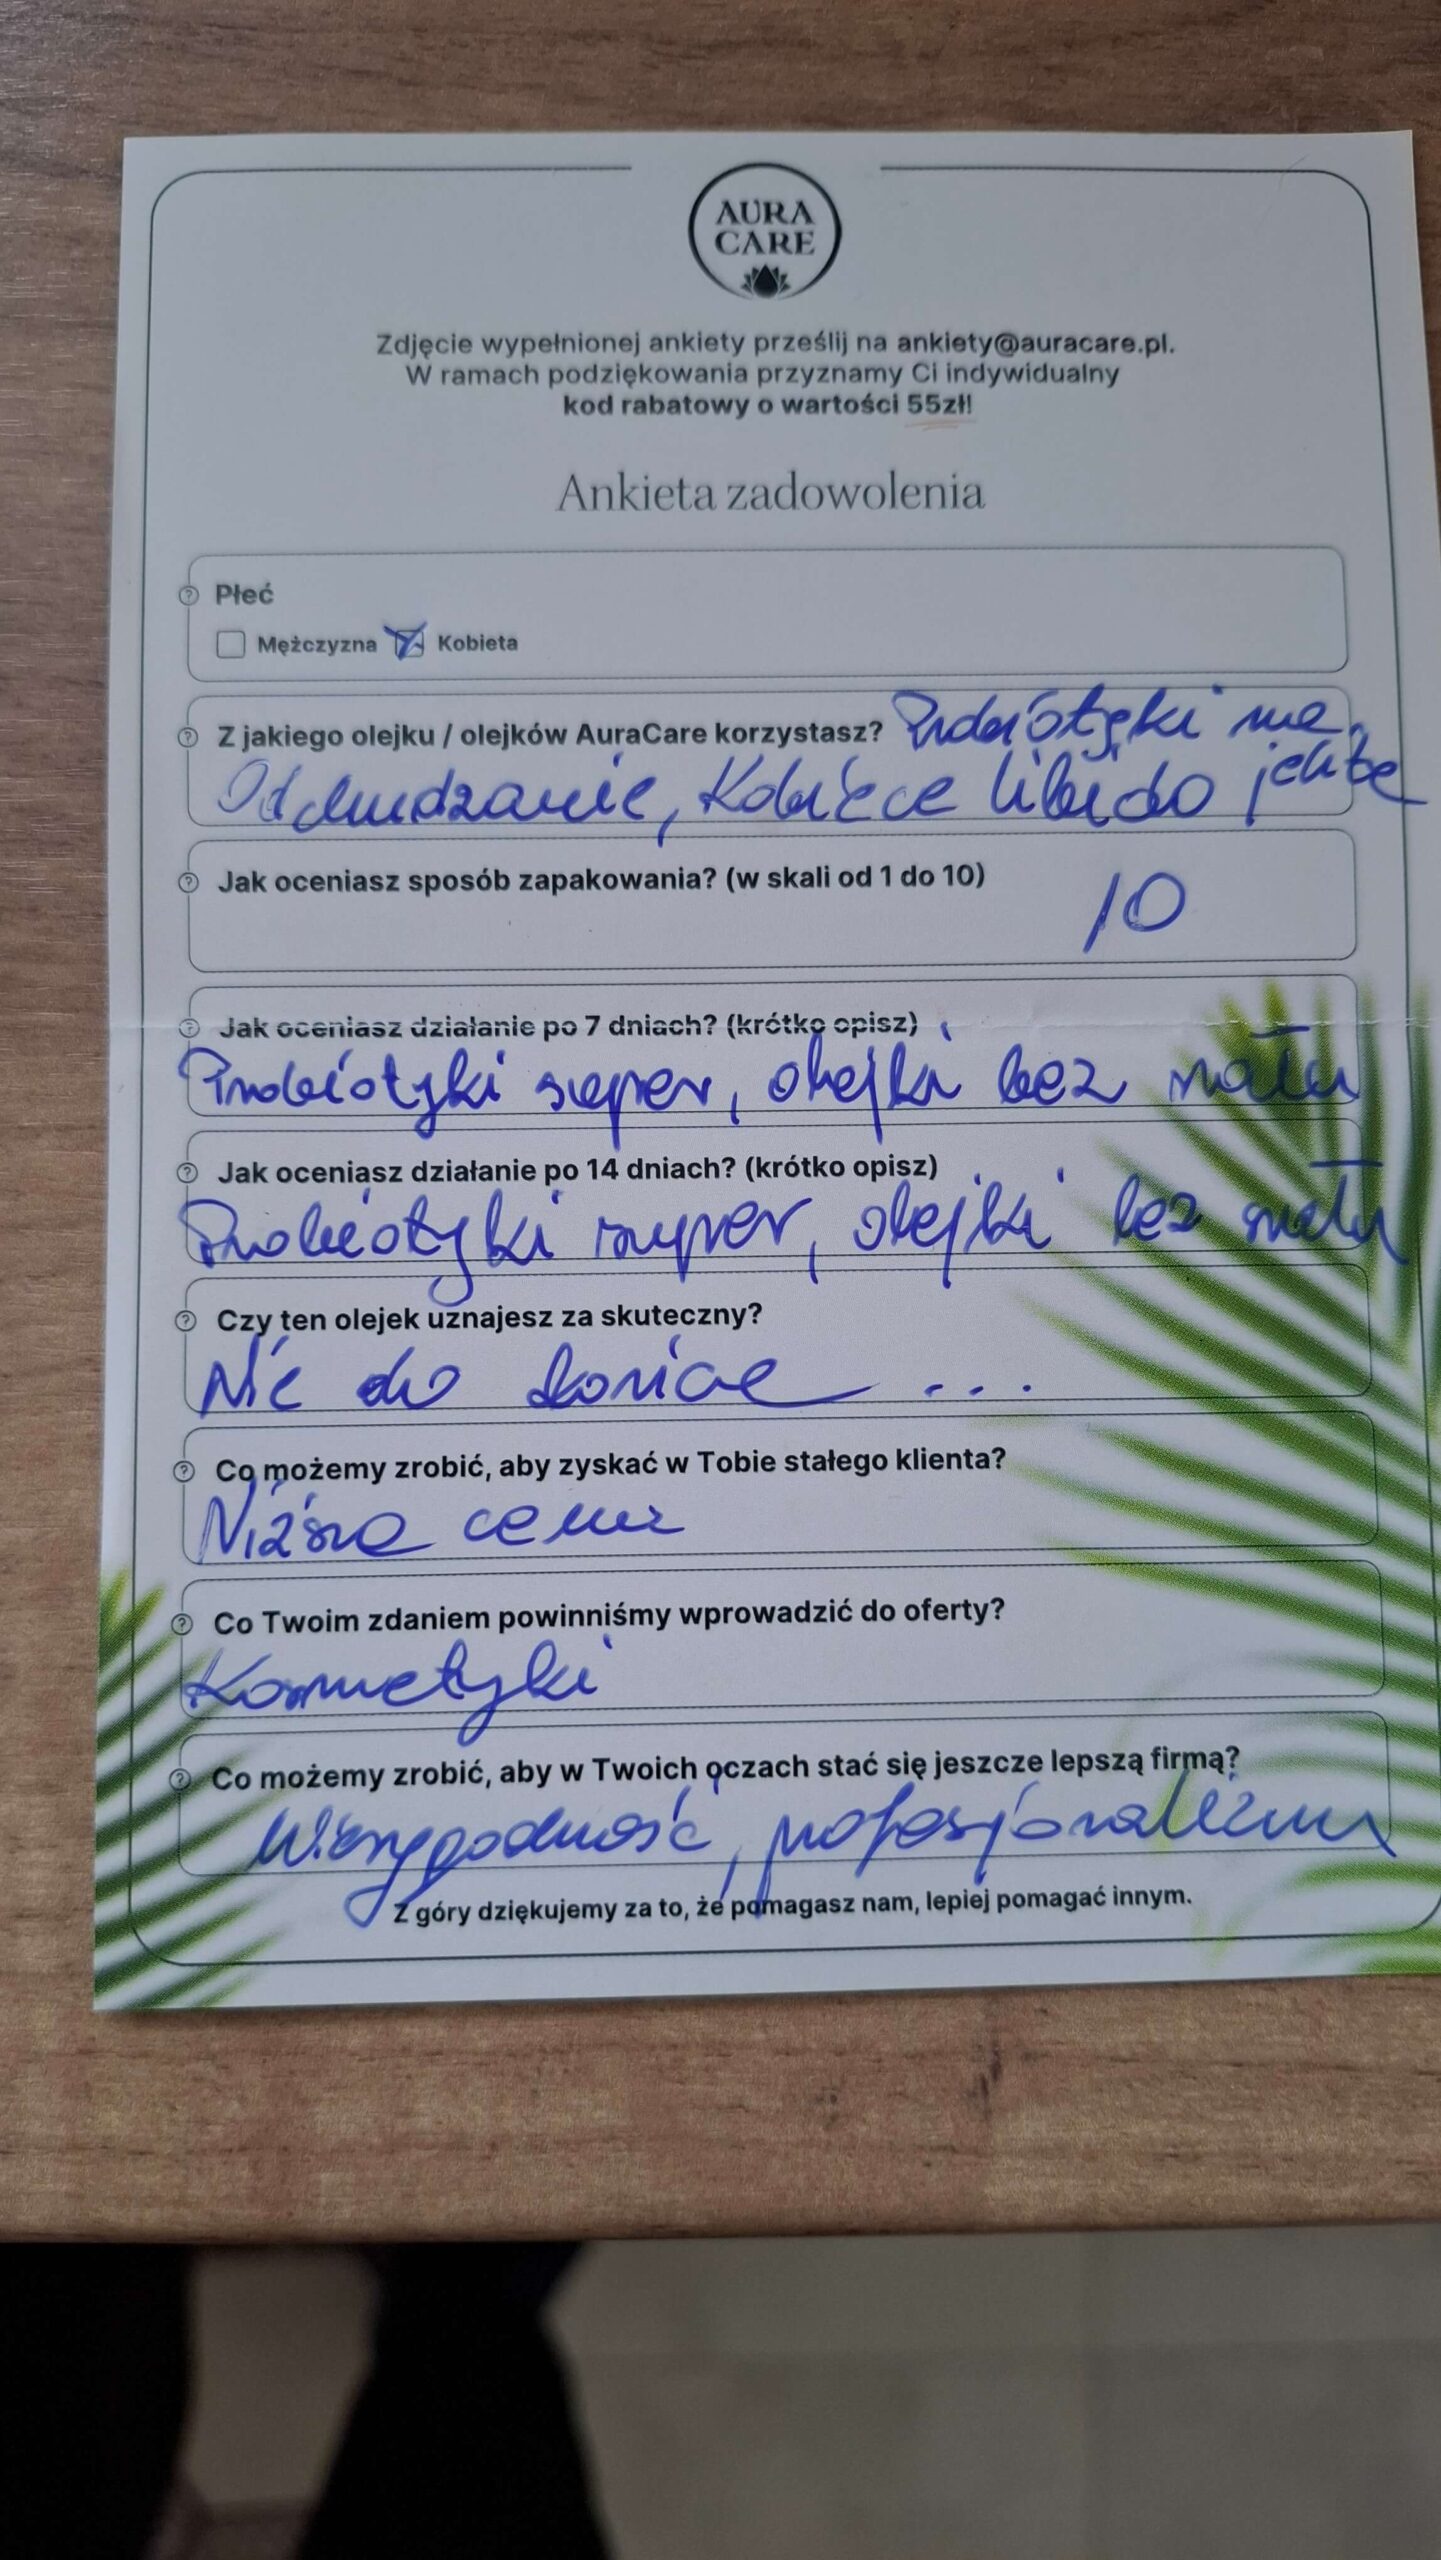 AURA
CARE
Zdjęcie wypełnionej ankiety prześlij na ankiety@auracare.pl.
W ramach podziękowania przyznamy Ci indywidualny
kod rabatowy o wartości 55zł!
Ankieta zadowolenia
Płeć
Mężczyzna Kobieta
Z jakiego olejku / olejków AuraCare korzystasz? Probiotyki na
Odchudzanie, Kobiece libido jelita
Jak oceniasz sposób zapakowania? (w skali od 1 do 10) 10
Jak oceniasz działanie po 7 dniach? (krótko opisz)
Probiotyki super, olejki bez szału
Jak oceniasz działanie po 14 dniach? (krótko opisz)
Probiotyki super, olejki bez szału
Czy ten olejek uznajesz za skuteczny?
Nie do końca ...
Co możemy zrobić, aby zyskać w Tobie stałego klienta?
Niższa cena
Co Twoim zdaniem powinniśmy wprowadzić do oferty?
Kosmetyki
Co możemy zrobić, aby w Twoich oczach stać się jeszcze lepszą firmą?
profesjonalizm
Z góry dziękujemy za to, że pomagasz nam, lepiej pomagać innym.